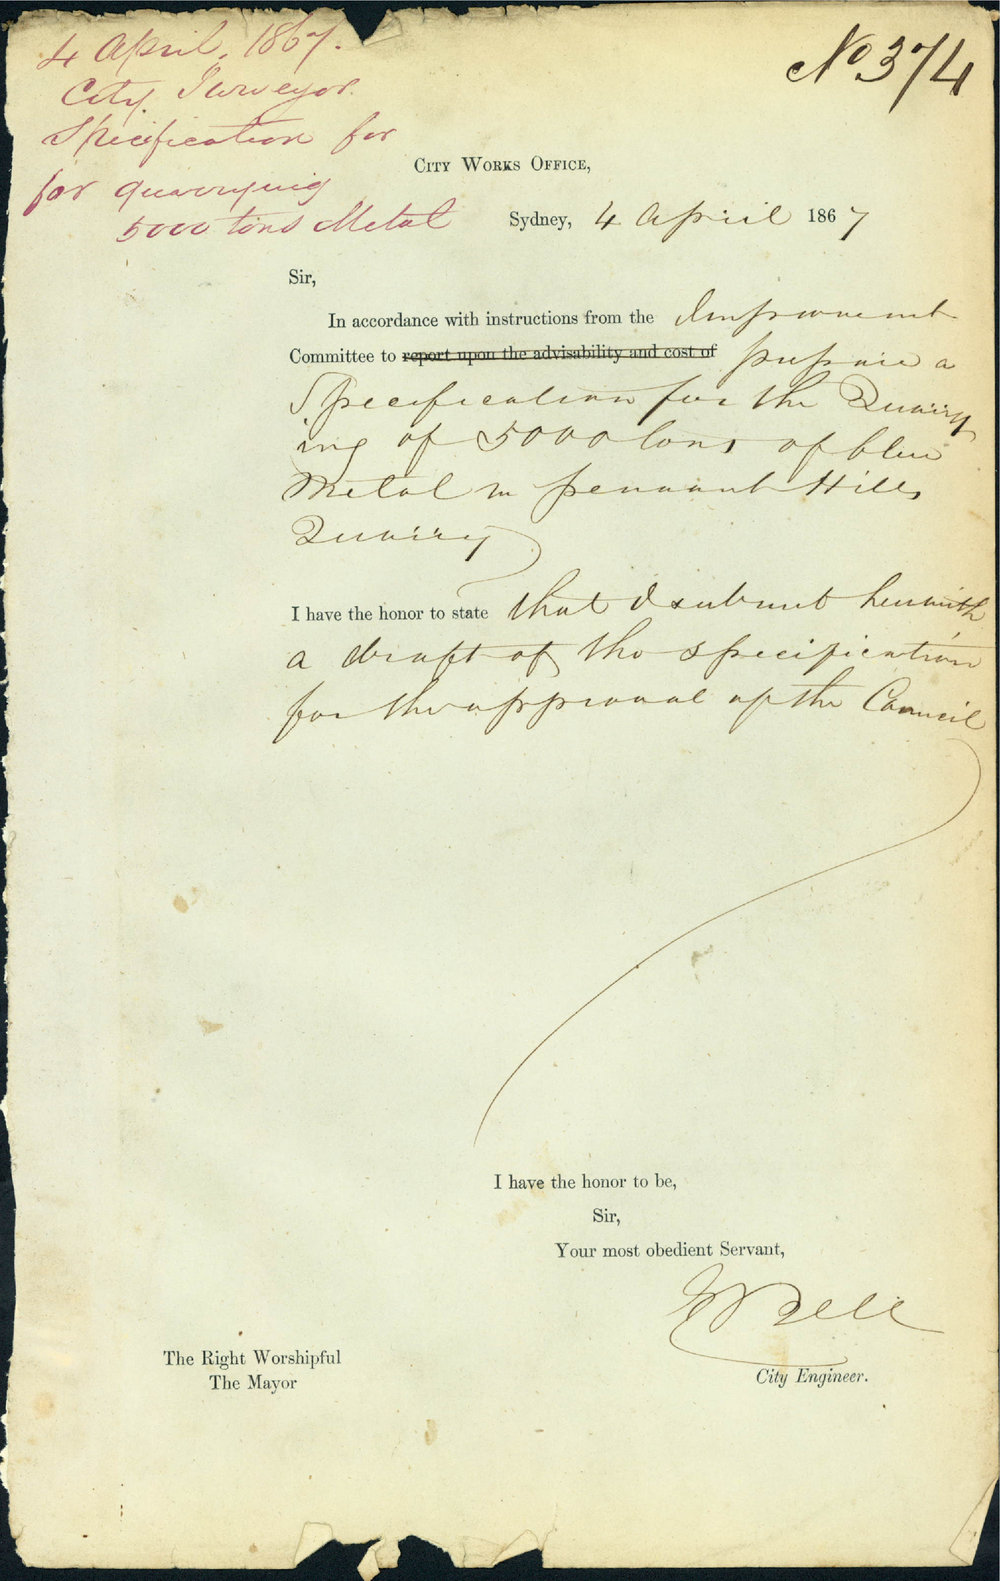 4 April, 1867.
City Surveyor.
Specification for
for quarrying
5000 tons Metal
No 374
City Works Office,
Sydney, 4 April 1867
Sir,
In accordance with instructions from the Improvement
Committee to report upon the advisability and cost of prepare a
Specification for the Quarry
ing of 5000 tons of blue
Metal in pennant Hills
Quarry
I have the honor to state that I submit herewith
a draft of the specification
for the approval of the Council
I have the honor to be,
Sir,
Your most obedient Servant,
E Bell
City Engineer.
The Right Worshipful
The Mayor